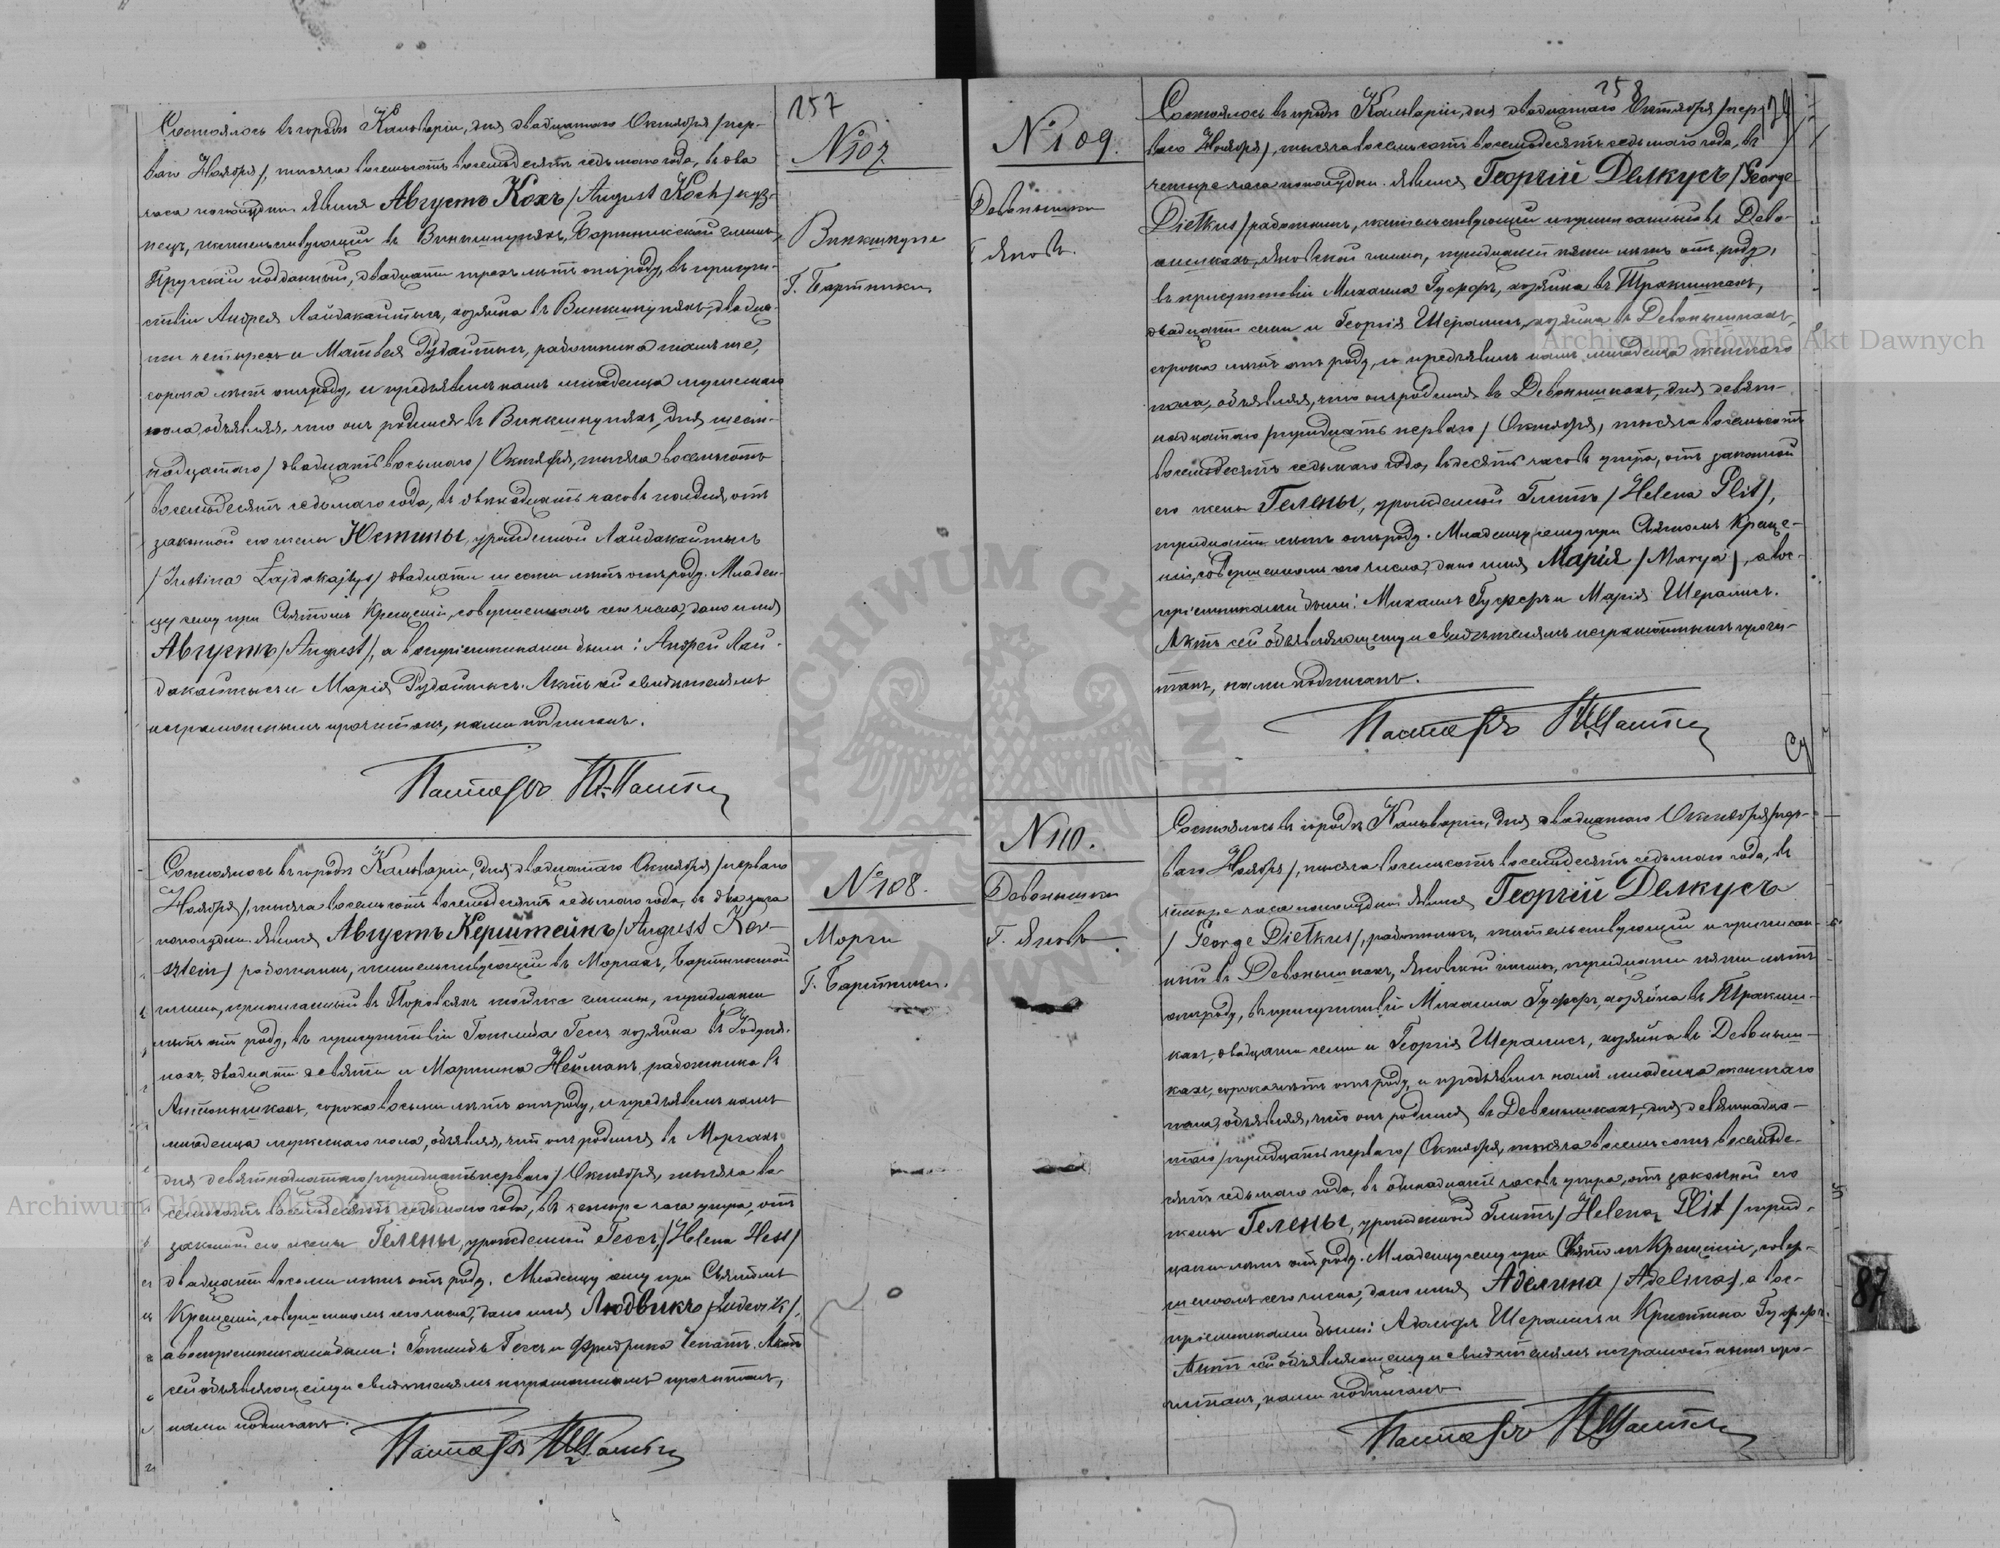 157
№ 107.
Винкшнупе
Г. Бартники
Состоялось въ городѣ Кальваріи, дня двадцатаго Октября /пер-
ваго Ноября/, тысяча восемьсотъ восемьдесятъ седьмаго года, въ два
часа пополудни. Явился Августъ Кохъ /August Koch/ куз-
нецъ, жительствующій въ Винкшнупяхъ, Бартникской гмины,
Прусскій подданный, двадцати трехъ лѣтъ отъ роду, въ присут-
ствіи Андрея Лайдакайтысъ, хозяина въ Винкшнупяхъ, двадца-
ти четырехъ и Матвея Рудайтысъ, работника тамъ же,
сорока лѣтъ отъ роду, и предъявилъ намъ младенца мужескаго
пола, объявляя, что онъ родился въ Винкшнупяхъ, дня шест-
надцатаго /двадцать восьмаго/ Октября, тысяча восемьсотъ
восемьдесятъ седьмаго года, въ двѣнадцать часовъ полдня, отъ
законной его жены Юстины, урожденной Лайдакайтысъ
/Justina Łajdakajtys/ двадцати шести лѣтъ отъ роду. Младен-
цу сему при Святомъ Крещеніи, совершенномъ сего числа, дано имя
Августъ /August/, а воспріемниками были: Андрей Лай-
дакайтысъ и Марія Рудайтысъ. Актъ сей свидѣтелямъ
неграмотнымъ прочитанъ, нами подписанъ.
Пасторъ
№ 108.
Морги
Г. Бартники.
Состоялось въ городѣ Кальваріи, дня двадцатаго Октября /перваго
Ноября/, тысяча восемьсотъ восемьдесятъ седьмаго года, въ два часа
пополудни. Явился Августъ Керштейнъ /August Ker-
sztein/ работникъ, жительствующій въ Моргахъ, Бартникской
гмины, приписанный въ той же гмины, тридцати
лѣтъ отъ роду, въ присутствіи Готлиба Гессъ хозяина въ
двадцати девяти и Мартина Нейманъ, работника въ
Антонишкахъ, сорока восьми лѣтъ отъ роду, и предъявилъ намъ
младенца мужескаго пола, объявляя, что онъ родился въ Моргахъ
дня девятнадцатаго /тридцать перваго/ Октября, тысяча во-
семьсотъ восемьдесятъ седьмаго года, въ четыре часа утра, отъ
законной его жены Гелены, урожденной Гессъ /Helena Hess/
двадцати восьми лѣтъ отъ роду. Младенцу сему при Святомъ
Крещеніи, совершенномъ сего числа, дано имя Людвикъ /Ludwik/,
а воспріемниками были: Готлибъ Гессъ и Фридрика Актъ
сей объявляющему и свидѣтелямъ неграмотнымъ прочитанъ,
нами подписанъ.
Пасторъ
158
№ 109.
Девонишки
Г. Яновъ.
Состоялось въ городѣ Кальваріи, дня двадцатаго Октября /пер-
ваго Ноября/, тысяча восемьсотъ восемьдесятъ седьмаго года, въ
четыре часа пополудни. Явился Георгій Делкусъ /George
Dietkus/ работникъ, жительствующій и приписанный въ Дево-
нишкахъ, Яновской гмины, тридцати пяти лѣтъ отъ роду,
въ присутствіи Михаила Гуфферъ, хозяина въ Тракишкахъ,
двадцати семи и Георгія Шералисъ, хозяина въ Девонишкахъ,
сорока лѣтъ отъ роду, и предъявилъ намъ младенца женскаго
пола, объявляя, что онъ родился въ Девонишкахъ, дня девят-
надцатаго /тридцать перваго/ Октября, тысяча восемьсотъ
восемьдесятъ седьмаго года, въ десять часовъ утра, отъ законной
его жены Гелены, урожденной Глитъ /Helena Glit/,
тридцати лѣтъ отъ роду. Младенцу сему при Святомъ Креще-
ніи, совершенномъ сего числа, дано имя Марія /Marya/, а вос-
пріемниками были: Михаилъ Гуфферъ и Марія Шералисъ.
Актъ сей объявляющему и свидѣтелямъ неграмотнымъ прочи-
танъ, нами подписанъ.
Пасторъ
№ 110.
Девонишки
Г. Яновъ.
Состоялось въ городѣ Кальваріи, дня двадцатаго Октября /пер-
ваго Ноября/, тысяча восемьсотъ восемьдесятъ седьмаго года, въ
четыре часа пополудни. Явился Георгій Делкусъ
/George Dietkus/, работникъ, жительствующій и приписан-
ный въ Девонишкахъ, Яновской гмины, тридцати пяти лѣтъ
отъ роду, въ присутствіи Михаила Гуфферъ, хозяина въ Тракиш-
кахъ, двадцати семи и Георгія Шералисъ, хозяина въ Девониш-
кахъ, сорока лѣтъ отъ роду, и предъявилъ намъ младенца женскаго
пола, объявляя, что онъ родился въ Девонишкахъ, дня девятнадца-
таго /тридцать перваго/ Октября, тысяча восемьсотъ восемьде-
сятъ седьмаго года, въ одинадцать часовъ утра, отъ законной его
жены Гелены, урожденной Глитъ /Helena Glit/ трид-
цати лѣтъ отъ роду. Младенцу сему при Святомъ Крещеніи, совер-
шенномъ сего числа, дано имя Аделина /Adelina/, а вос-
пріемниками были: Адольфъ Шералисъ и Кристина Гуфферъ.
Актъ сей объявляющему и свидѣтелямъ неграмотнымъ про-
читанъ, нами подписанъ
Пасторъ
87
Archiwum Główne Akt Dawnych
Archiwum Główne Akt Dawnych
ARCHIWUM GŁÓWNE AKT DAWNYCH